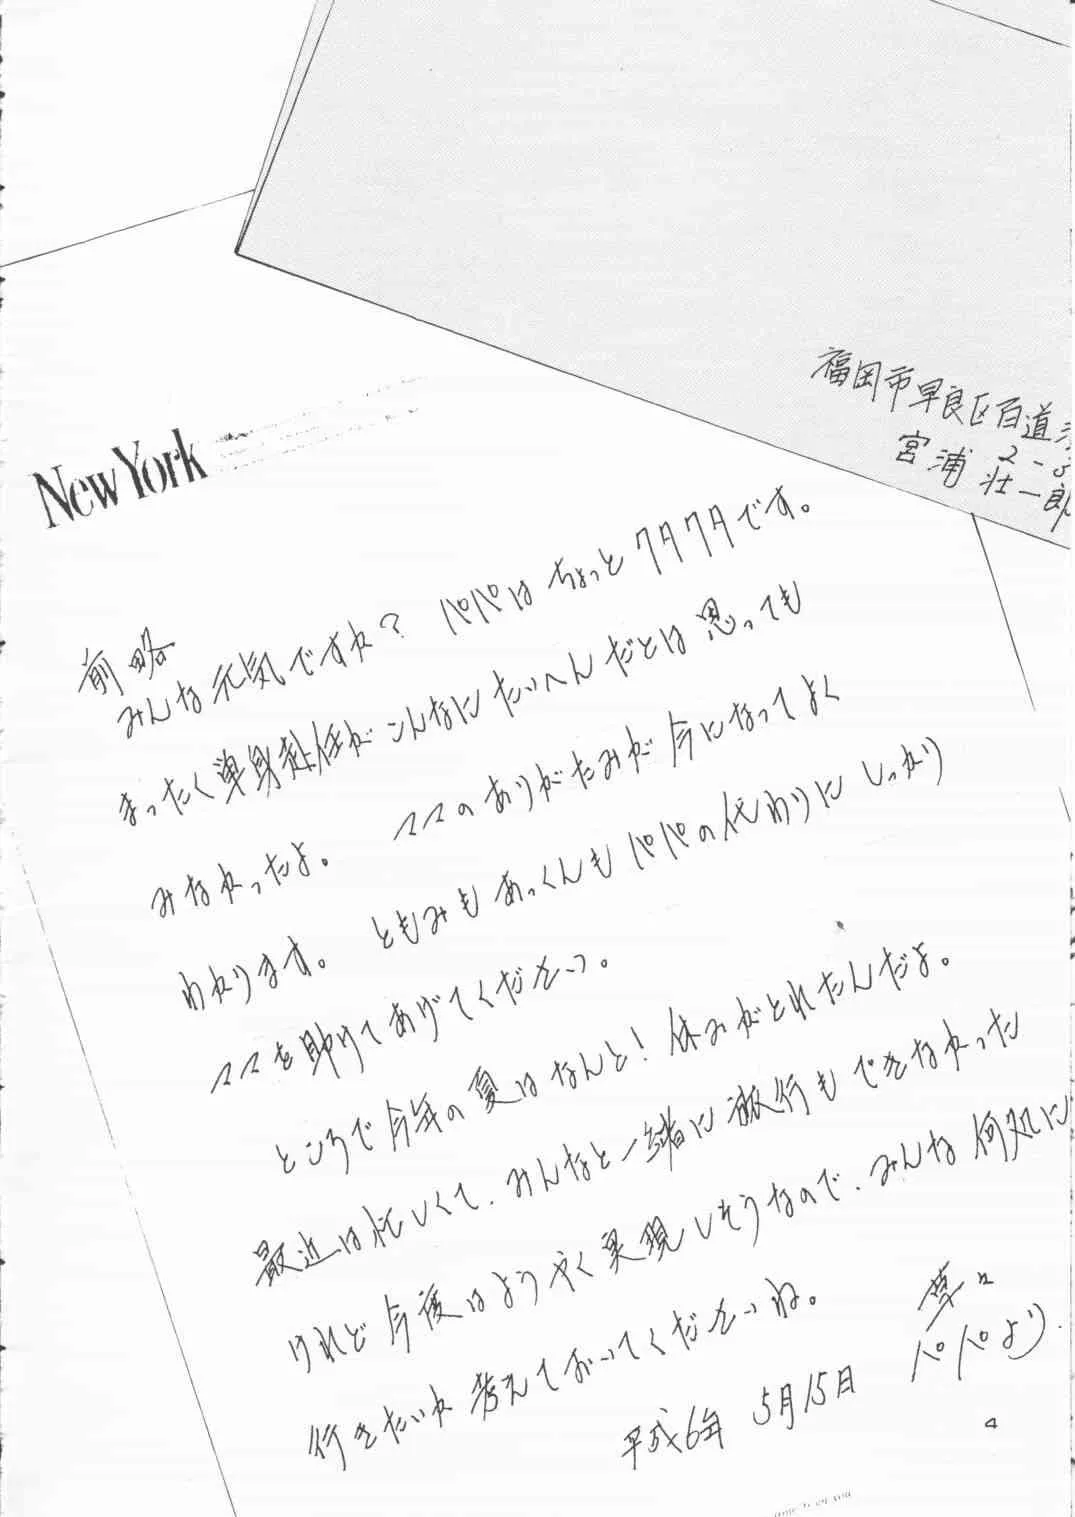 福岡市早良区百道
2-
宮浦 壮一郎
New York
前略
みんな元気ですか? パパはちょっとクタクタです。
まったく単身赴任がこんなにたいへんだとは思っても
みなかったよ。 ママのありがたみが今になってよく
わかります。 ともみもあっくんもパパの代わりにしっかり
ママを助けてあげてください。
ところで今年の夏はなんと! 休みがとれたんだよ。
最近は忙しくて、みんなと一緒に旅行もできなかった
けれど今度はようやく実現しそうなので、みんな何処に
行きたいか考えておいてくださいね。
草々
平成6年 5月15日 パパより.
4